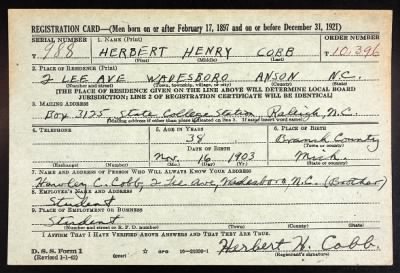 REGISTRATION CARD—(Men born on or after February 17, 1897 and on or before December 31, 1921)
SERIAL NUMBER 1. NAME (Print) ORDER NUMBER
988 HERBERT HENRY COBB 10,396
(First) (Middle) (Last)
2. PLACE OF RESIDENCE (Print)
2 LEE AVE WADESBORO ANSON N.C.
(Number and street) (Town, township, village, or city) (County) (State)
[THE PLACE OF RESIDENCE GIVEN ON THE LINE ABOVE WILL DETERMINE LOCAL BOARD
JURISDICTION; LINE 2 OF REGISTRATION CERTIFICATE WILL BE IDENTICAL]
3. MAILING ADDRESS
Box 3125, State College Station Raleigh, N.C.
[Mailing address if other than place indicated on line 2. If same insert word same]
4. TELEPHONE 5. AGE IN YEARS 6. PLACE OF BIRTH
38 Branch County
DATE OF BIRTH (Town or county)
Nov. 16 1903 Mich.
(Exchange) (Number) (Mo.) (Day) (Yr.) (State or country)
7. NAME AND ADDRESS OF PERSON WHO WILL ALWAYS KNOW YOUR ADDRESS
Hawley C. Cobb, 2 Lee Ave, Wadesboro, N.C. (Brother)
8. EMPLOYER'S NAME AND ADDRESS
Student
9. PLACE OF EMPLOYMENT OR BUSINESS
Student
(Number and street or R. F. D. number) (Town) (County) (State)
I AFFIRM THAT I HAVE VERIFIED ABOVE ANSWERS AND THAT THEY ARE TRUE.
D. S. S. Form 1
(Revised 1-1-42) (over) GPO Herbert H. Cobb.
(Registrant's signature)